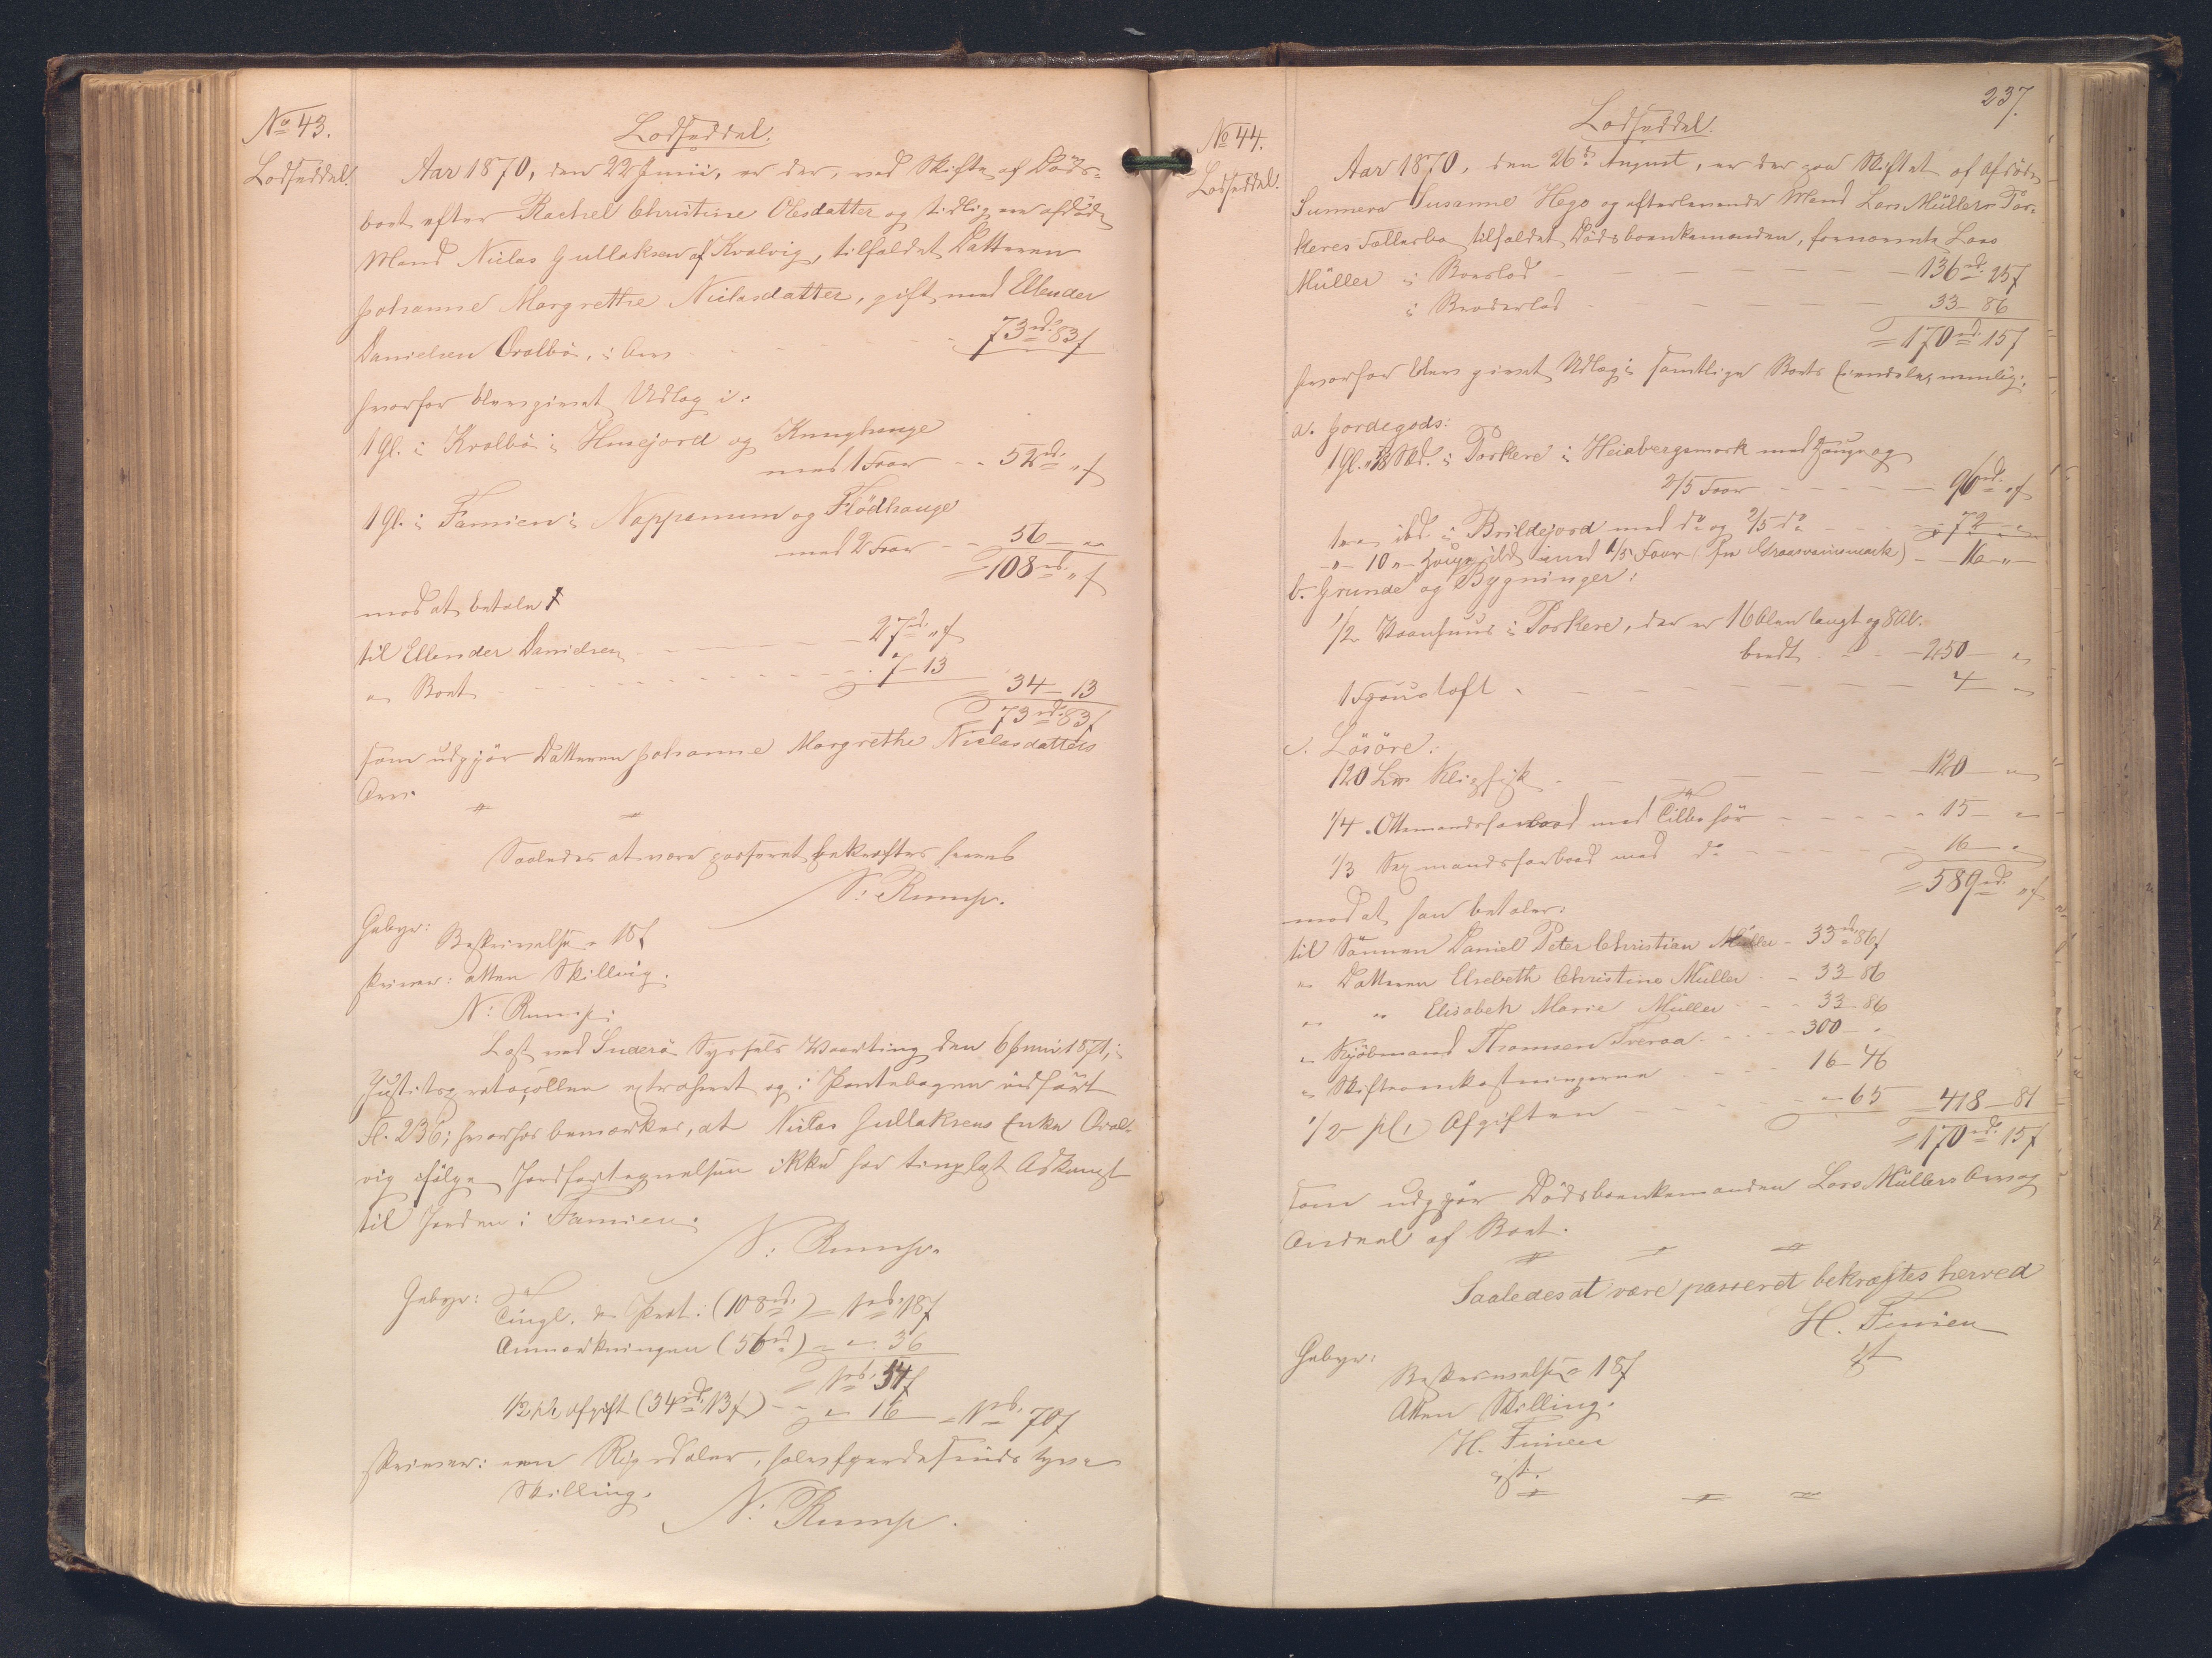 No 43.
Lodseddel.
Lodseddel.
Aar 1870, den 22 Junii, er der, ved Skifte af Døds-
boet efter Rachel Christine Olesdatter og tidligere afdøde
Mand Niclas Gullaksen af Kvalvig, tilfaldet Datteren
Johanne Margrethe Niclasdatter, gift med Ellender
Danielsen Qvalbö, i Arv - - - 73 rd. 83 f
hvorfor blev givet Udlæg i:
1 Gl. i Kvalbö i Husejord og Kunghauge
med 1 Foer - - 52 rd. " f
1 Gl. i Famien i Nappemum og Flödhauge
med 2 Foer - - 56 - "
= 108 rd. " f
mod at betale
til Ellender Danielsen - - - 27 rd. " f
" Boet - - - 7 - 13
34 - 13
= 73 rd. 83 f
som udgjör Datteren Johanne Margrethe Niclasdatters
Arv.
Saaledes at være passeret bekræftes herved
N: Rump.
Gebyr: Beskrivelse " 18 f
skriver: atten Skilling.
N: Rump.
Læst ved Suderö Syssels Vaarting den 6 Juni 1871, i
Justitsprotocollen extraheret og i Pantebogen indfört
Fl. 236; hvorhos bemærkes, at Niclas Gullaksens Enke Qval-
vig ifölge Jordfortegnelsen ikke har tinglæst Adkomst
til Jorden i Famien.
N: Rump.
Gebyr: Tingl. & Prot: (108 rd.) = 1 rd. 18 f
Anmærkningen (56 rd) = " - 36
= 1 rd. 54 f
1/2 pCt afgift (34 rd. 13 f) - " - 16 = 1 rd. 70 f
skriver: een Rigsdaler, halvfjerdesinds tyve
Skilling.
N: Rump.
237.
No 44.
Lodseddel.
Lodseddel.
Aar 1870, den 26de August, er der paa Skiftet af afdöde
Sunneva Susanne Hego og efterlevende Mand Lars Müllers Por-
keres Fællesbo tilfaldet Dödsboenkemanden, fornævnte Lars
Müller i Boeslod - - - 136 rd. 25 f
i Broderlod - - - 33 - 86
= 170 rd. 15 f
hvorfor blev givet Udlæg i samtlige Boets Eiendele, nemlig:
a. Jordegods:
1 Gl. " Skd. i Porkere i Heidbergsmork med Hauge og
2/5 Foer - - - 96 rd. " f
1 " " ibd. i Brildejord med do og 2/5 do - - - 72 - "
" - 10 " Hauge ibd med 1/5 Foer (fra Graasveinsmark) - - 16 - "
b. Grunde og Bygninger:
1/2 Vaanhuus i Porkere, der er 16 Alen langt og 8 Al.
bredt - - - 250 - "
1 Hjoustoft - - - 4 - "
c. Lösöre:
120 Lpd. Klipfisk - - - 120 - "
1/4 Ottemandsfarbaad med Tilbehör - - - 15 - "
1/3 Sexmandsfarbaad med do - - - 16 - "
= 589 rd. " f
mod at han betaler:
til Sönnen Daniel Peter Christian Müller - 33 rd. 86 f
" Datteren Elsebeth Christine Müller - - 33 - 86
" " Elisabeh Marie Müller - - - 33 - 86
" Kjöbmand Thomsen Tveraa - - - 300 - "
" Skifteomkostningerne - - - 16 - 46
1/2 pCt Afgiften - - - " - 65 418 - 81
= 170 rd. 15 f
som udgjör Dödsboenkemanden Lars Müllers Arv og
Andeel af Boet.
Saaledes at være passeret bekræftes herved
H. Finsen
cst
Gebyr: Beskrivelse " 18 f
Atten Skilling.
H. Finsen
cst.